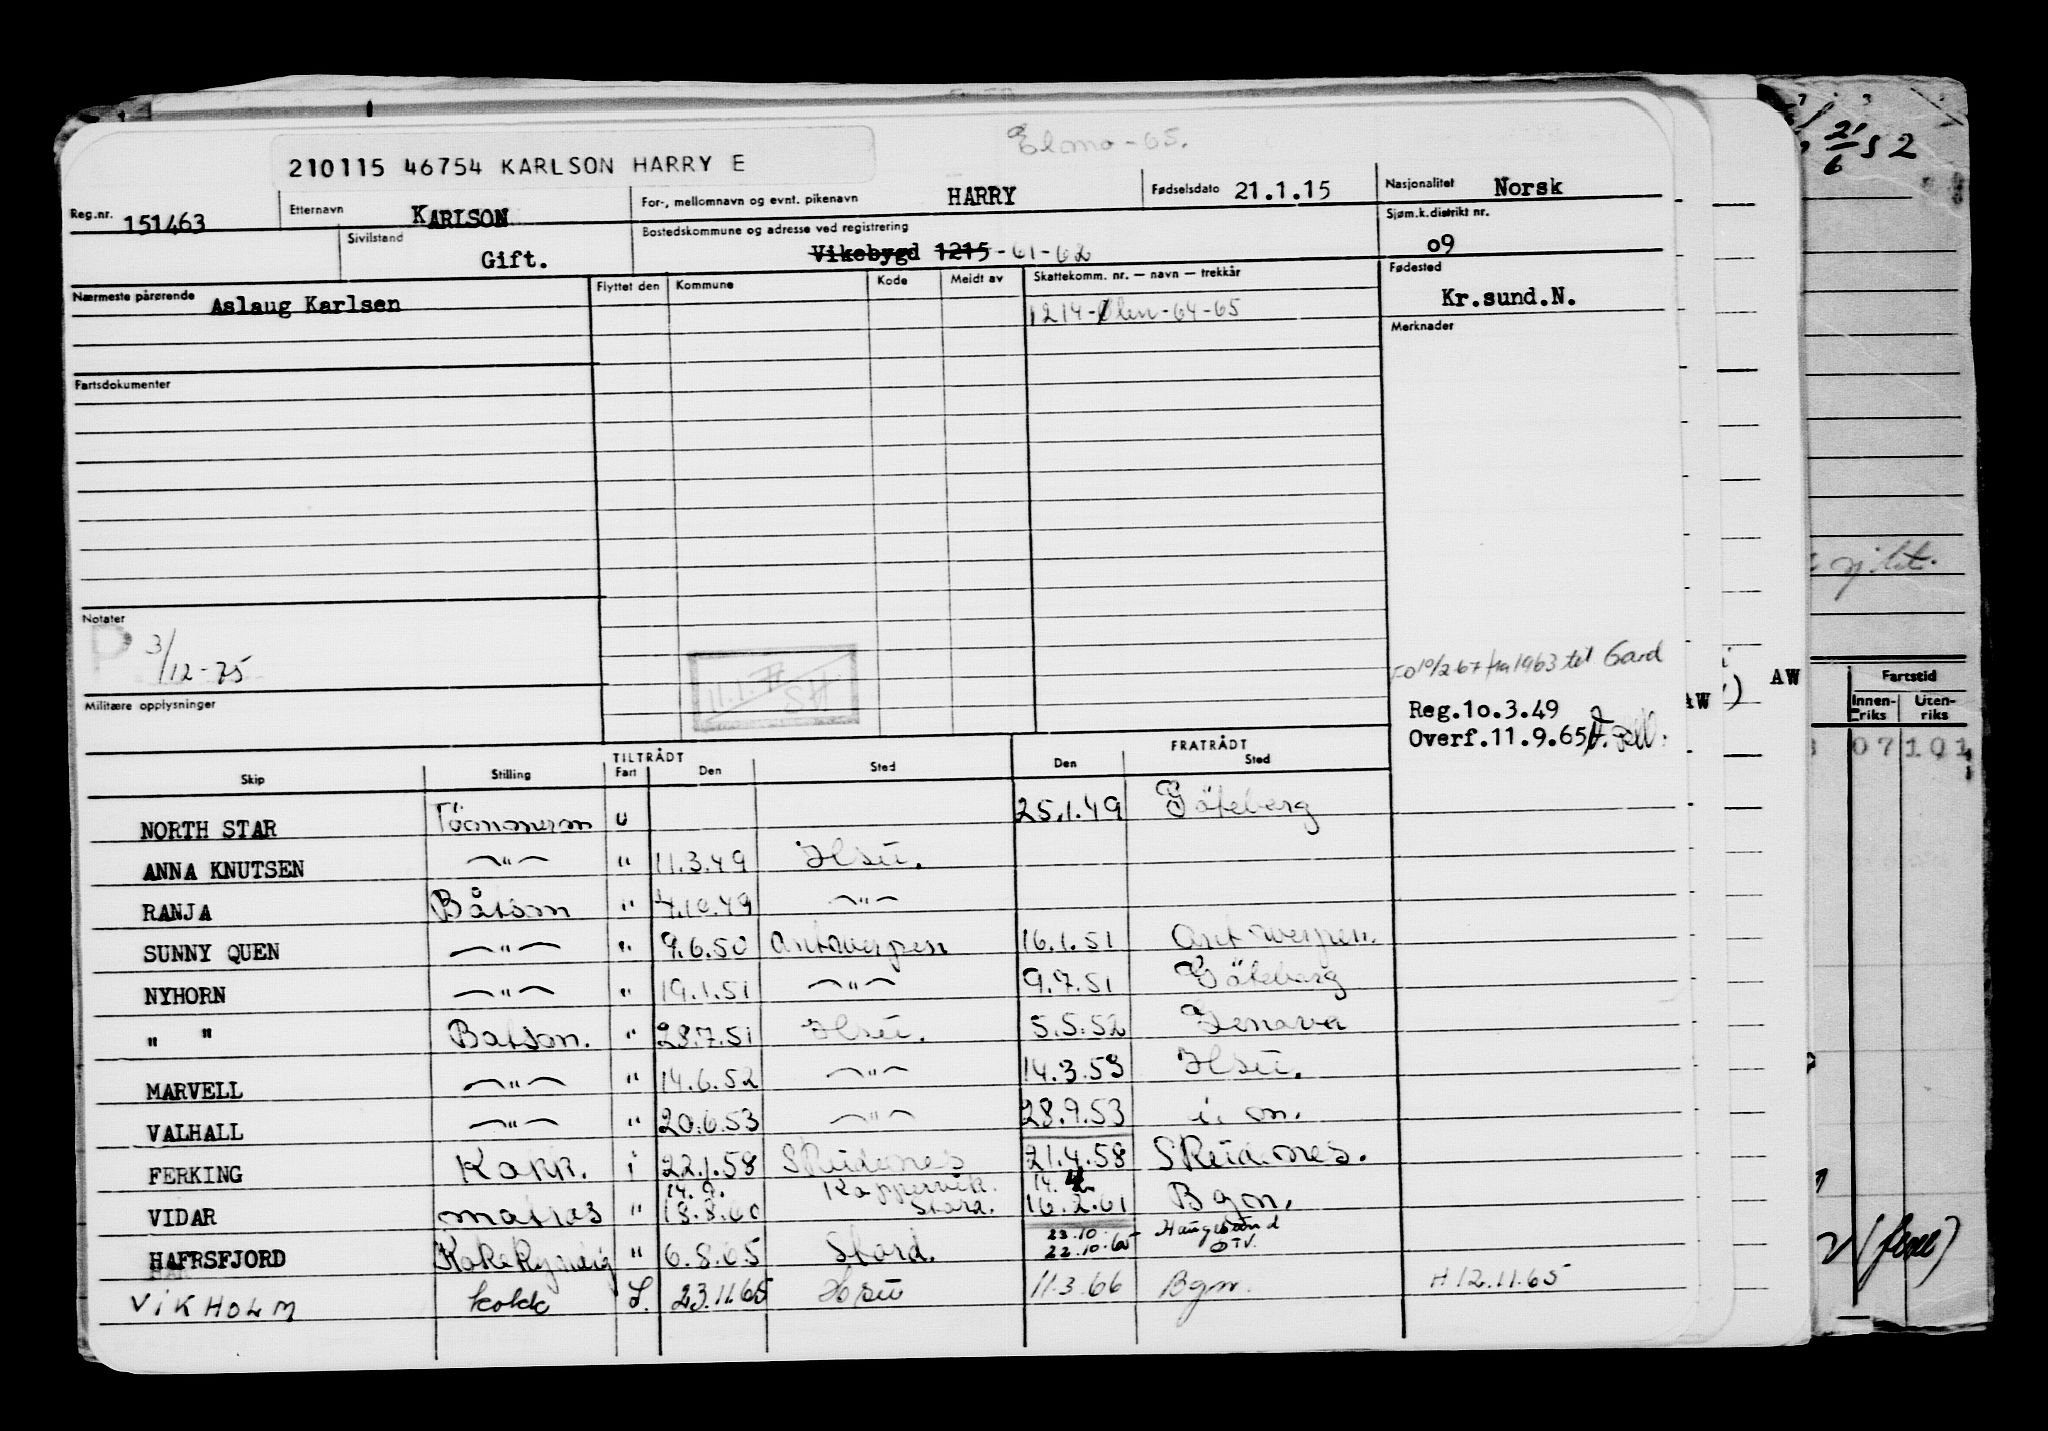 210115 46754 KARLSON HARRY E
Reg.nr. 151463 Etternavn KARLSON For-, mellomnavn og evnt. pikenavn HARRY Fødselsdato 21.1.15 Nasjonalitet Norsk
Sivilstand Gift. Bostedskommune og adresse ved registrering Vikebygd 1215 -61-62 Sjøm.k.distrikt nr. 09
Nærmeste pårørende Aslaug Karlsen Flyttet den Kommune Kode Meldt av Skattekomm. nr. — navn — trekkår Fødested Kr.sund.N.
1214-Ølen-64-65
Merknader
Fartsdokumenter
Notater
P 3/12-75
Militære opplysninger
10/2 67 fra 1963 til Gard
Reg.1o.3.49
Overf.11.9.65
TILTRÅDT FRATRÅDT
Skip Stilling Fart Den Sted Den Sted
NORTH STAR Tömmerm u 25.1.49 Göteborg
ANNA KNUTSEN —"— " 11.3.49 Hsu.
RANJA Båtsm " 4.10.49 —"—
SUNNY QUEN —"— " 9.6.50 Antwerpen 16.1.51 Antwerpen.
NYHORN —"— " 19.1.51 —"— 9.7.51 Göteborg
" " Batsm. " 28.7.51 Hsu. 5.5.52 Genova
MARVELL —"— " 14.6.52 —"— 14.3.53 Hsu.
VALHALL —"— " 20.6.53 —"— 28.9.53 i. m.
FERKING Kokk. i 22.1.58 Skudenes 21.4.58 Skudenes.
VIDAR matros " 14.9. 18.8.60 Koppervik. Stord. 14. 16.2.61 Bgn.
HAFRSFJORD Kokkkyndig " 6.8.65 Stord. 23.10 22.10.65 Haugesund
VIKHOLM kokk 23.11.65 Hsu 11.3.66 Bgn. H 12.11.65
21/6 52
AW
AW
Fartstid
Innen-riks Uten-riks
07 101